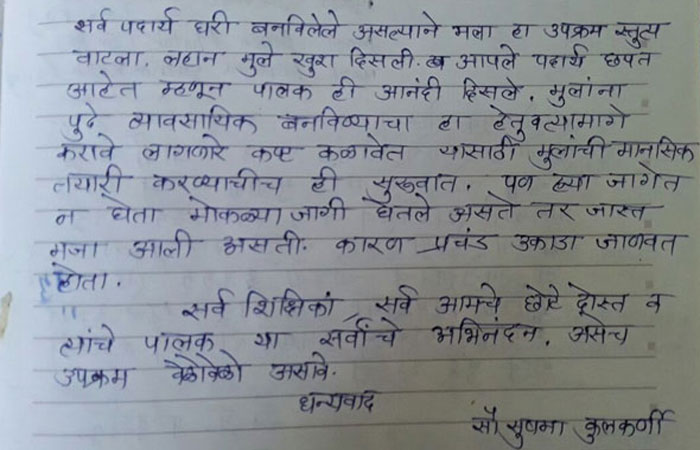 सर्व पदार्थ घरी बनविलेले असल्याने मला हा उपक्रम स्तुत्य
वाटला. लहान मुले खुश दिसली. आपले पदार्थ छपत
आहेत म्हणून पालक ही आनंदी दिसले. मुलांना
पुढे व्यावसायिक बनविण्याचा हा हेतु व त्यामागे
करावे लागणारे कष्ट कळावेत यासाठी मुलांची मानसिक
तयारी करण्याचीच ही सुरुवात. पण ह्या जागेत
न घेता मोकळ्या जागी घेतले असते तर जास्त
मजा आली असती. कारण प्रचंड उकाडा जाणवत
होता.
सर्व शिक्षिकां, सर्व आमचे छोटे दोस्त व
त्यांचे पालक या सर्वांचे अभिनंदन. असेच
उपक्रम वेळोवेळी असावे.
धन्यवाद
सौ सुषमा कुलकर्णी